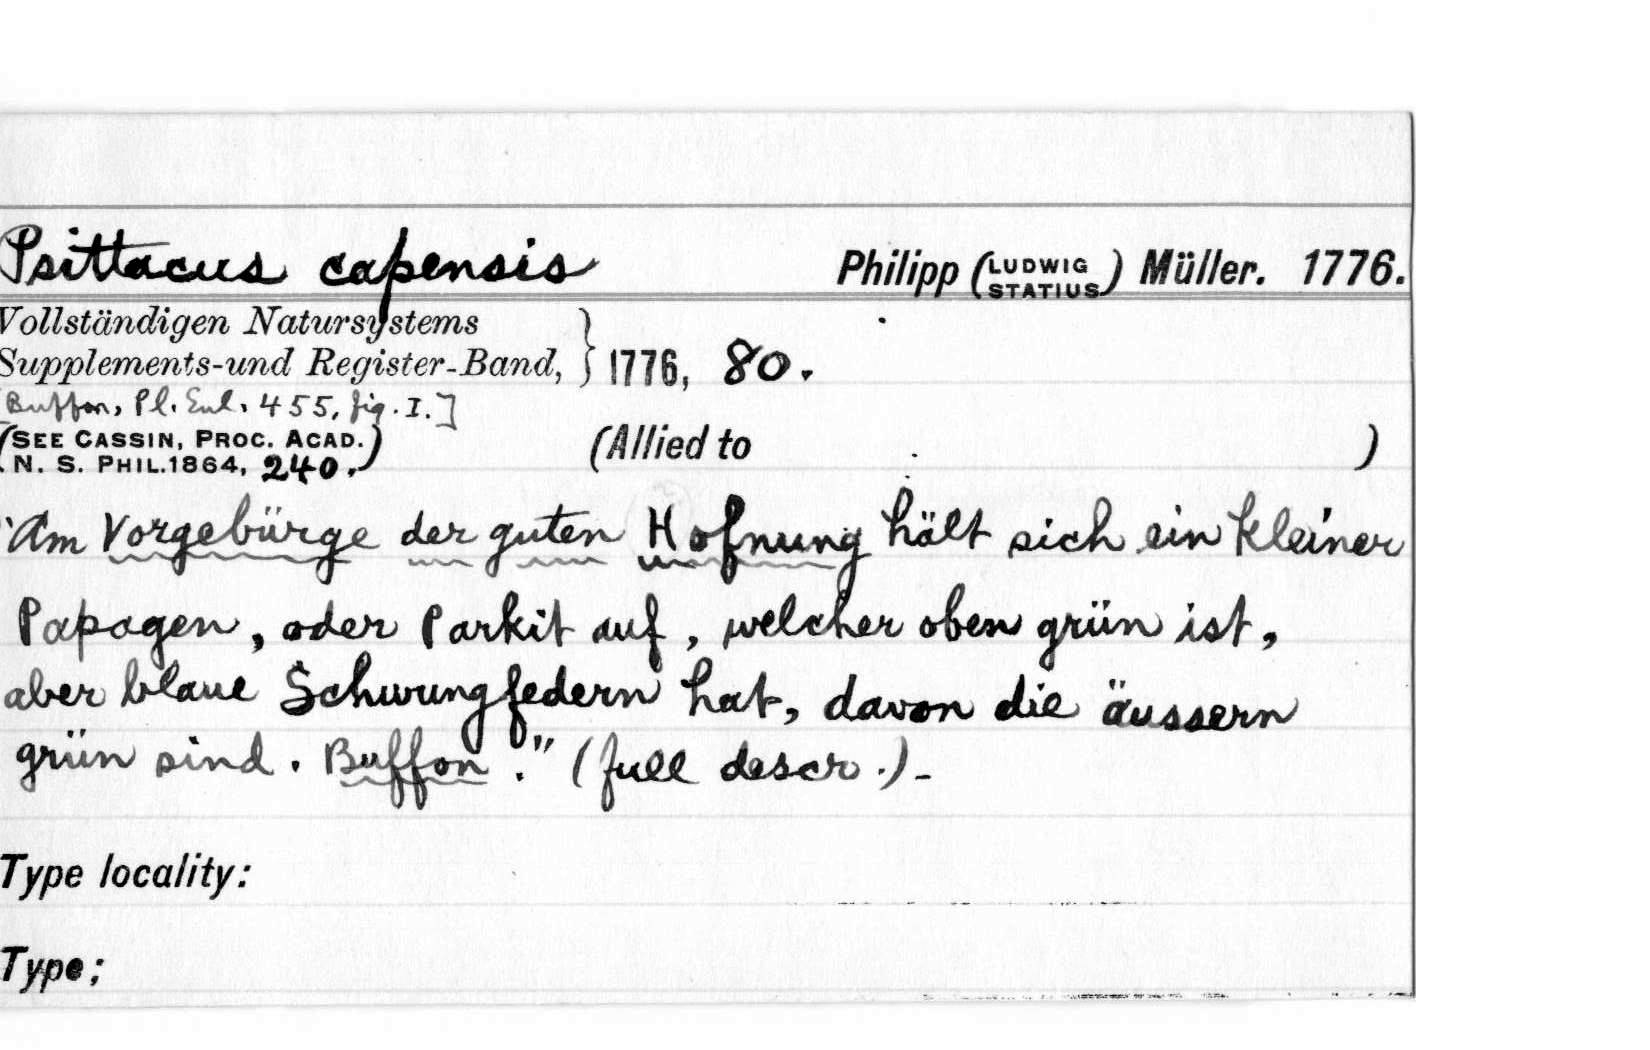 Psittacus capensis Philipp (LUDWIG STATIUS) Müller. 1776.
Vollständigen Natursystems
Supplements-und Register-Band, } 1776, 80.
[Buffon, Pl. Enl. 455, fig. I.]
(SEE CASSIN, PROC. ACAD.
N. S. PHIL. 1864, 240.) (Allied to )
"Am Vorgebürge der guten Hofnung hält sich ein kleiner
Papagen, oder Parkit auf, welcher oben grün ist,
aber blaue Schwungfedern hat, davon die äussern
grün sind. Buffon." (full descr.)-
Type locality:
Type;